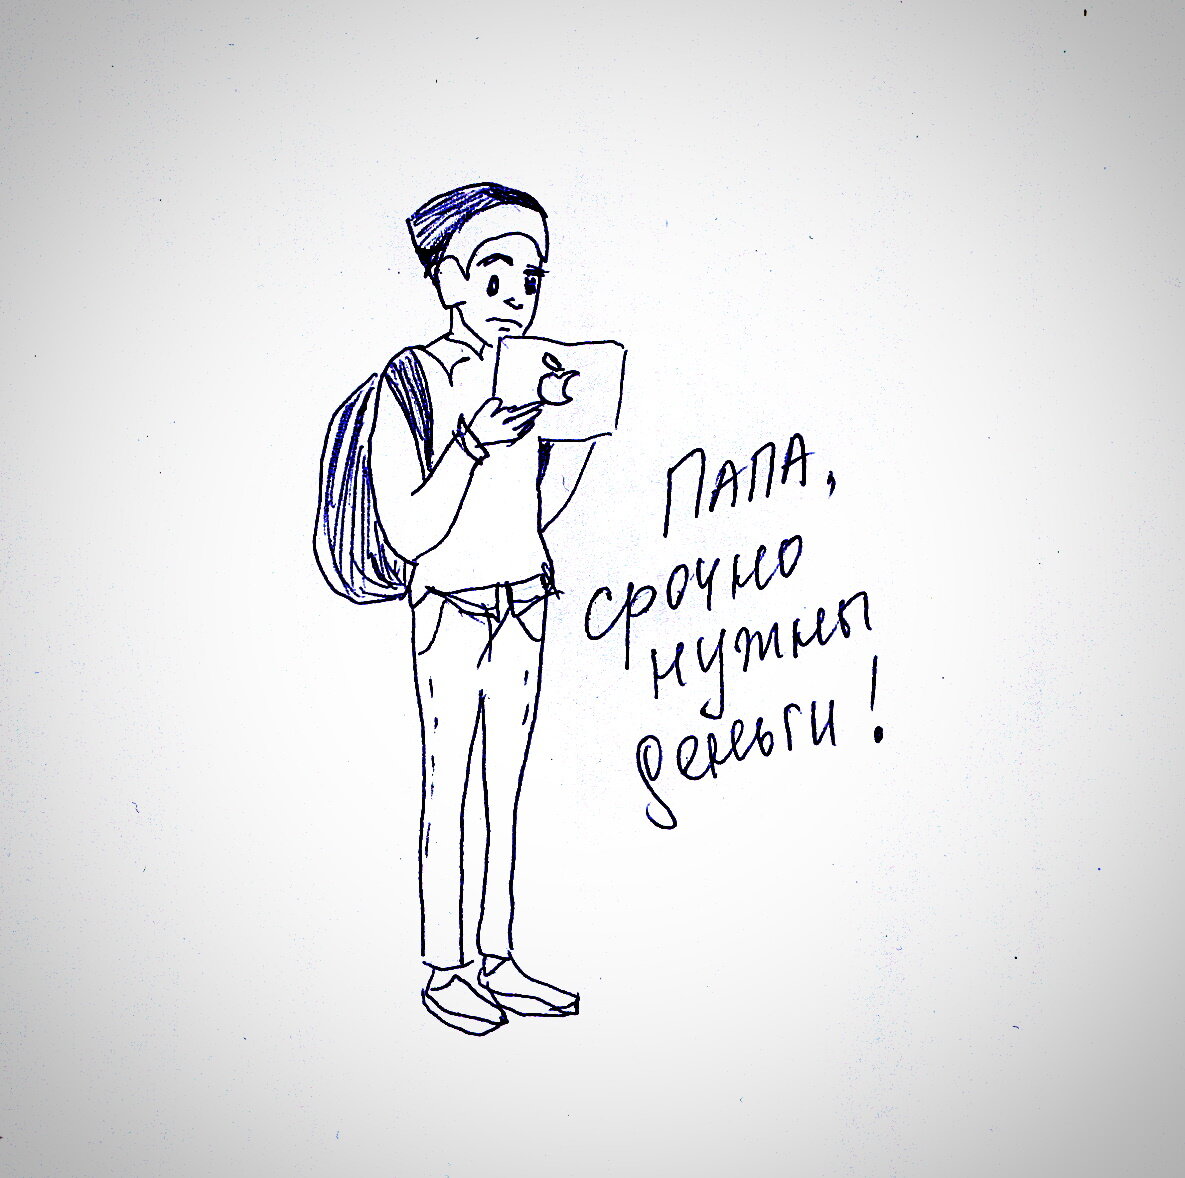 ПАПА,
срочно
нужны
деньги!